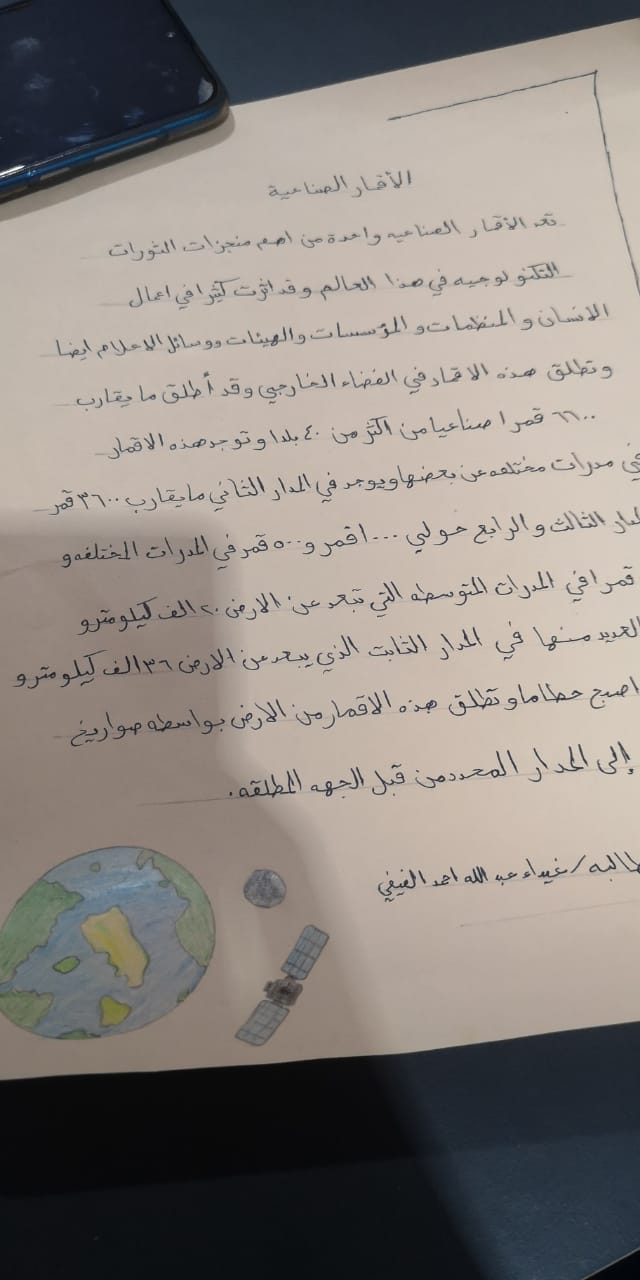 الأقمار الصناعية
تعد الأقمار الصناعيه واحدة من اهم منجزات الثورات
التكنولوجيه في هذا العالم وقد اثرت كثيرا في اعمال
الانسان والمنظمات والمؤسسات والهيئات ووسائل الاعلام ايضا
وتطلق هذه الاقمار في الفضاء الخارجي وقد أطلق ما يقارب
٦٦٠٠ قمرا صناعيا من اكثر من ٤٠ بلدا وتوجد هذه الاقمار
في مدرات مختلفه عن بعضها ويوجد في المدار الثاني ما يقارب ٣٦٠٠ قمر
الثالث والرابع حولي ١٠٠٠ قمر و ٥٠٠ قمر في المدرات المختلفه و
قمرا في المدرات المتوسطه التي تبعد عن الارض ٢٠ الف كيلومترو
العديد منها في المدار الثابت الذي يبعد عن الارض ٣٦ الف كيلومترو
اصبح حطاما وتطلق هذه الاقمار من الارض بواسطه صواريخ
إلى المدار المحدد من قبل الجهه المطلقه.
غيداء عبد الله احمد الفيفي